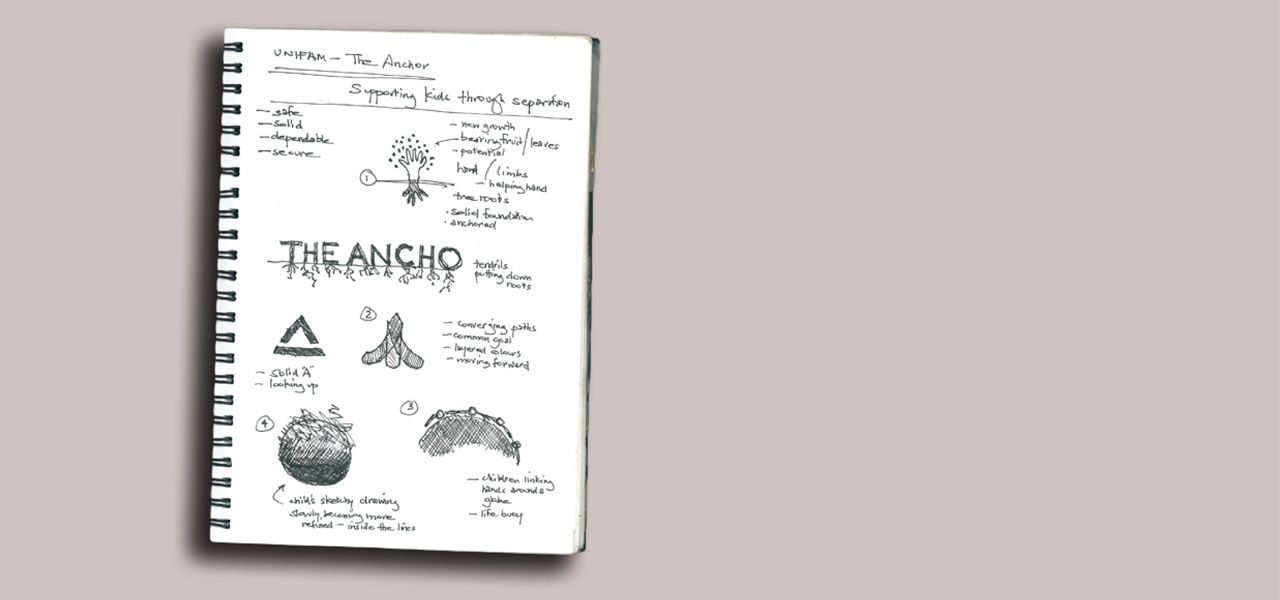 UNIFAM — The Anchor
Supporting kids through separation
— safe
— solid
— dependable
— secure
— new growth
— bearing fruit/leaves
— potential
hand / limbs
— helping hand
tree roots
· solid foundation
· anchored
1
THE ANCHO
tendrils
putting down
roots
2
— converging paths
— common goal
— layered colours
— moving forward
— solid "A"
— looking up
4
3
child's sketchy drawing
slowly becoming more
refined — inside the lines
— children linking
hands around a
globe
— life buoy